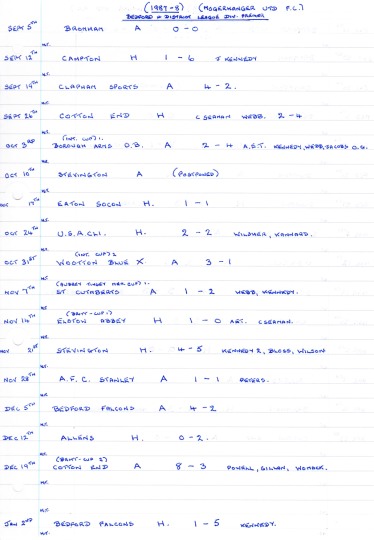 (1987-8) (MOGERHANGER UTD F.C.)
BEDFORD & DISTRICT LEAGUE DIV. PREMIER
SEPT 5TH BROMHAM A 0-0
H.T.
SEPT 12TH CAMPTON H 1-6 J KENNEDY
H.T.
SEPT 19TH CLAPHAM SPORTS A 4-2.
H.T.
SEPT 26TH COTTON END H C SEAMAN WEBB. 2-4
H.T.
(INT. CUP) 1.
OCT 3RD BOROUGH ARMS O.B. A 2-4 A.S.T. KENNEDY, WEBB, JACOBS O.G.
H.T.
OCT 10TH STEVINGTON A (POSTPONED)
H.T.
OCT 17TH EATON SOCON H. 1-1
H.T.
OCT 24TH U.S.A.C.L.I. H. 2-2 WILDMER, KANNARD.
H.T.
(INT. CUP) 2
OCT 31ST WOOTTON BLUE X A 3-1
H.T.
(AUBREY TINGEY MEM. CUP) 1.
NOV 7TH ST CUTHBERTS A 1-2 WEBB, KENNEDY.
H.T.
(BRIT-CUP 1)
NOV 14TH ELSTON ABBEY H 1-0 AET. C SEAMAN.
H.T.
NOV 21ST STEVINGTON H. 4-5 KENNEDY 2, BLOSS, WILSON
H.T.
NOV 28TH A.F.C. STANLEY A 1-1 PETERS.
H.T.
DEC 5TH BEDFORD FALCONS A 4-2
H.T.
DEC 12TH ALLENS H. 0-2.
H.T.
(BRIT-CUP 2)
DEC 19TH COTTON END A 8-3 POWELL, GILLAN, WOMACK.
H.T.
JAN 2ND BEDFORD FALCONS H. 1-5 KENNEDY.
H.T.